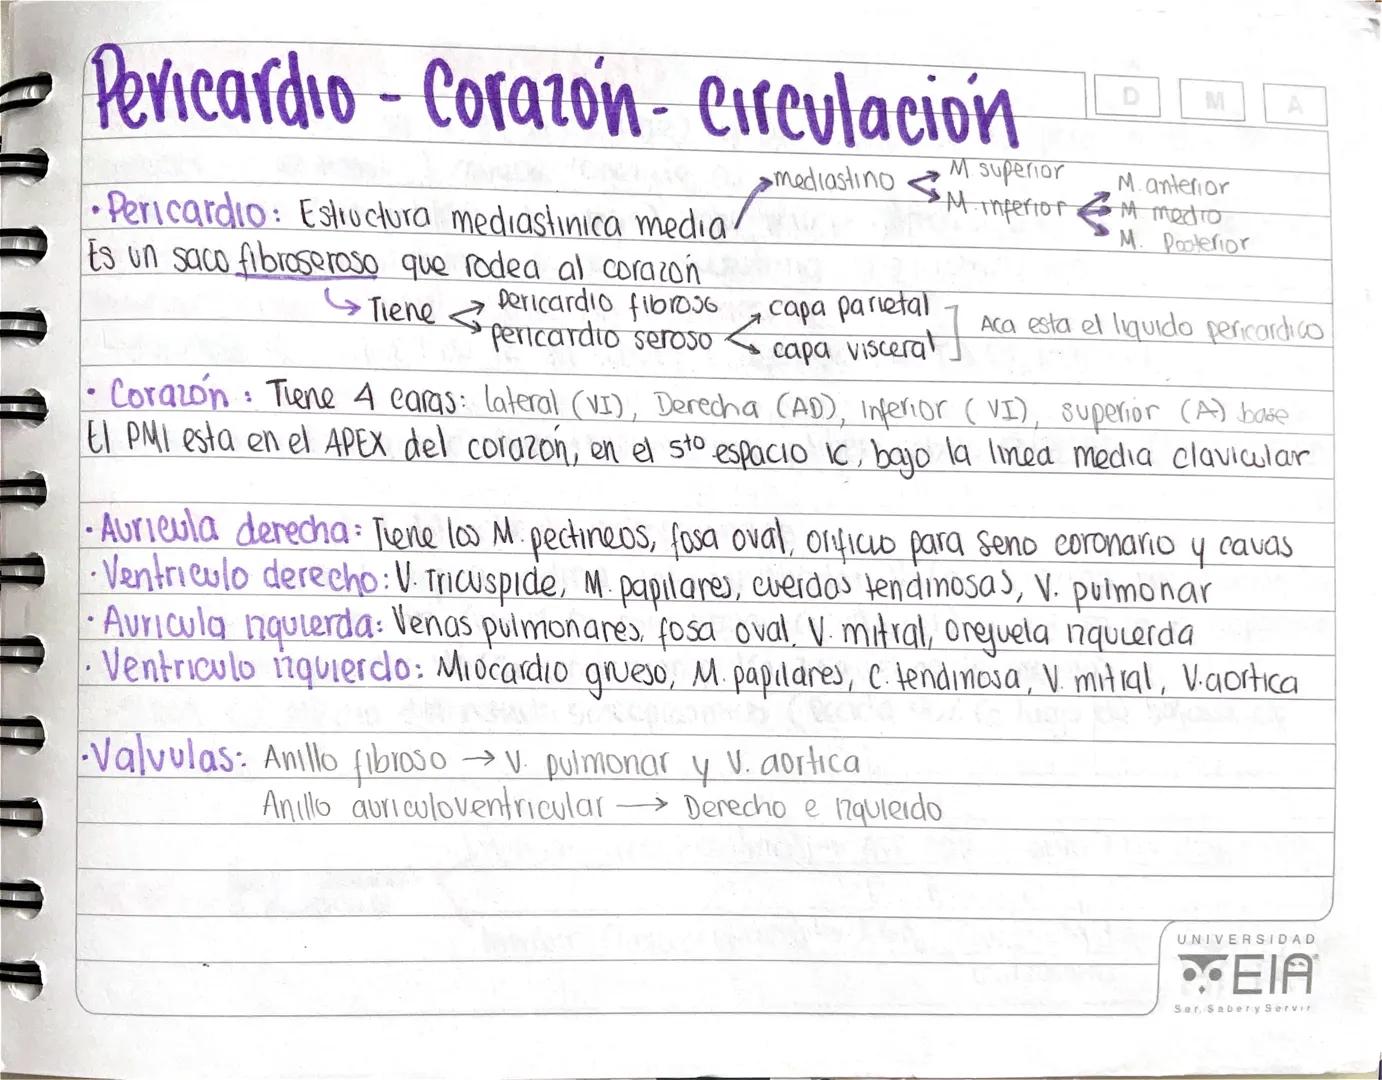 Pericardio - Corazón - Circulación
D M A
• Pericardio: Estructura mediastinica media → mediastino < M. superior
M. inferior < M. anterior
M medio
M. Posterior
Es un saco fibroseroso que rodea al corazón
↳ Tiene < pericardio fibroso
pericardio seroso < capa parietal
capa visceral ] Aca esta el liquido pericardico
• Corazón : Tiene 4 caras: lateral (VI), Derecha (AD), inferior (VI), superior (A) base
El PMI esta en el APEX del corazón, en el 5to espacio IC, bajo la linea media clavicular
• Auricula derecha: Tiene los M. pectineos, fosa oval, orificio para seno coronario y cavas
• Ventriculo derecho: V. Tricuspide, M. papilares, cuerdas tendinosas, V. pulmonar
• Auricula izquierda: Venas pulmonares, fosa oval, V. mitral, orejuela izquierda
• Ventriculo izquierdo: Miocardio grueso, M. papilares, C. tendinosa, V. mitral, V. aortica
• Valvulas: Anillo fibroso → V. pulmonar y V. aortica
Anillo auriculoventricular → Derecho e izquierdo
UNIVERSIDAD
EIA
Ser, Saber y Servir